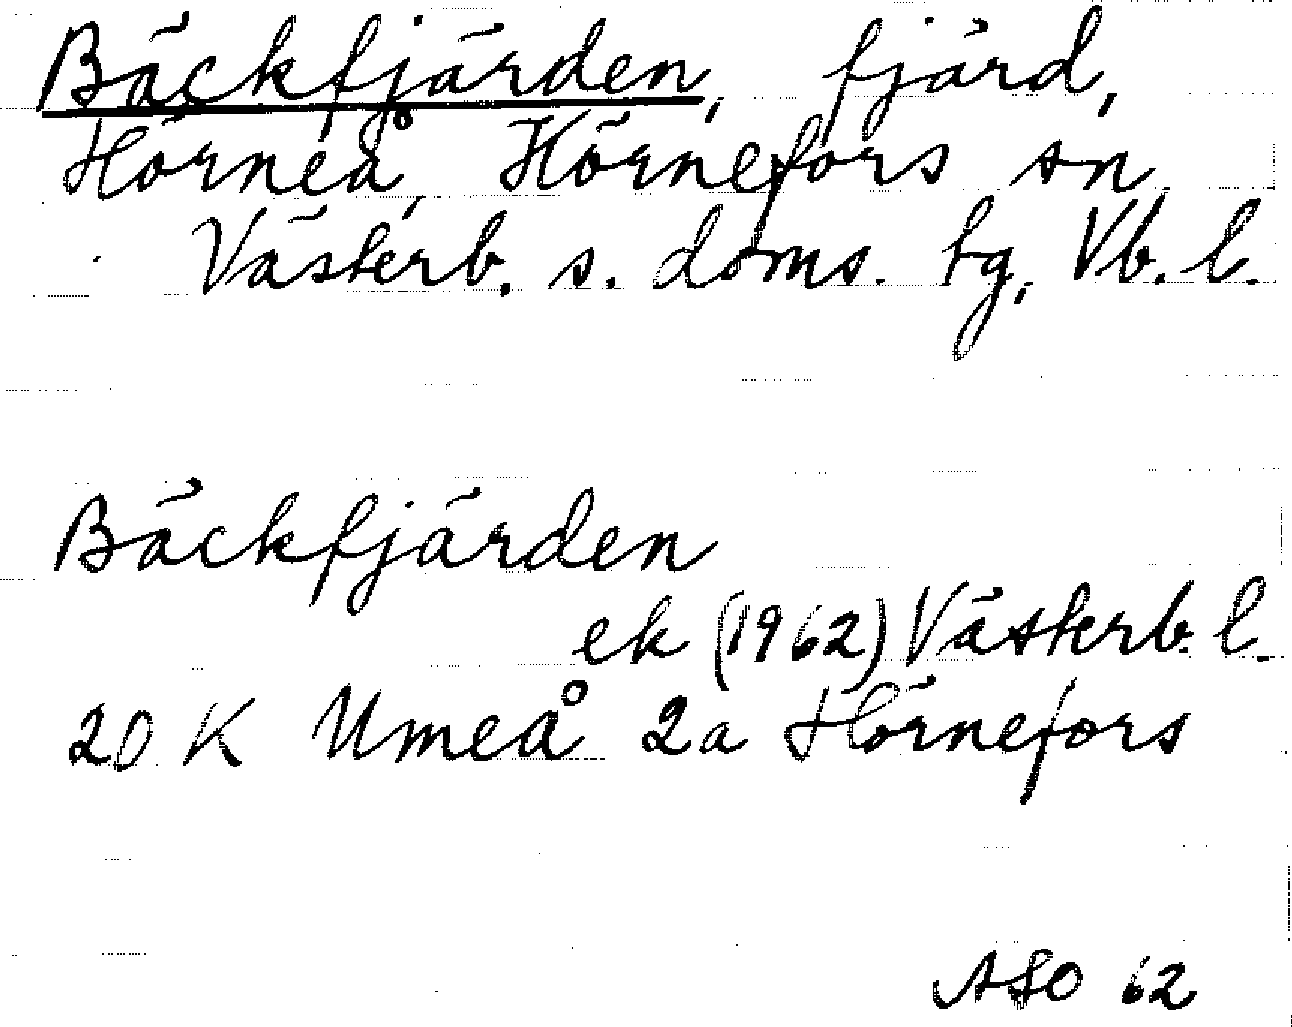 Bäckfjärden, fjärd,
Hörneå, Hörnefors sn
Västerb. s. doms. tg, Vb. l.
Bäckfjärden
ek (1962) Västerb. l.
20 K Umeå 2a Hörnefors
ASO 62